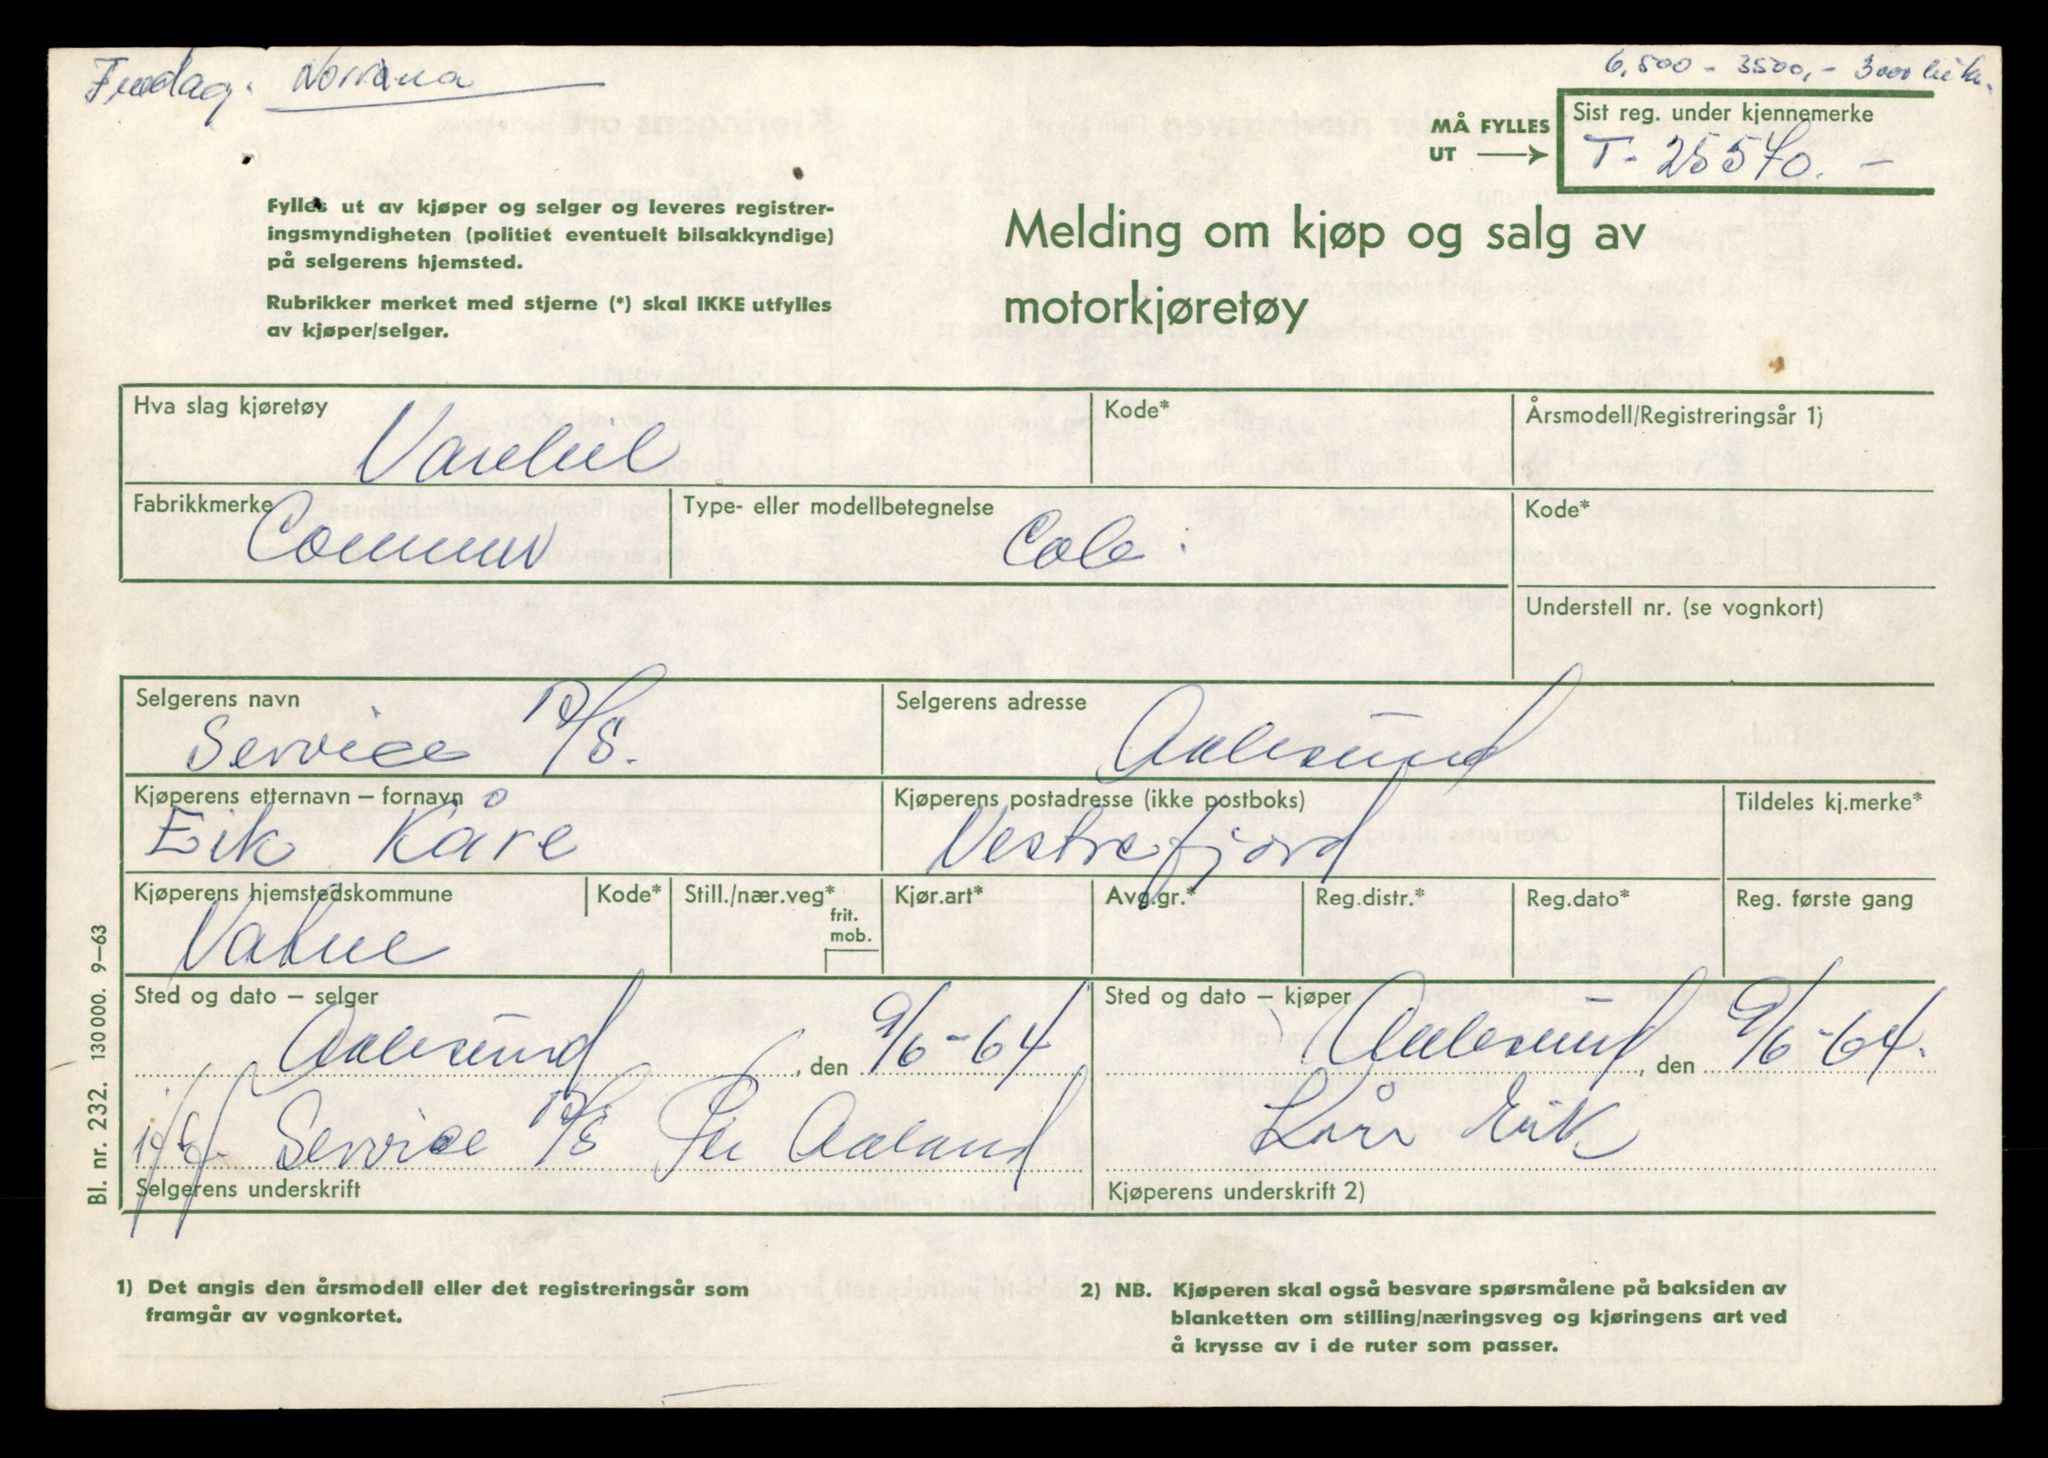 Norrøna
6.500 - 3500,- 3000
MÅ FYLLES
UT
Sist reg. under kjennemerke
T- 25570. -
Fylles ut av kjøper og selger og leveres registrer-
ingsmyndigheten (politiet eventuelt bilsakkyndige)
på selgerens hjemsted.
Rubrikker merket med stjerne (*) skal IKKE utfylles
av kjøper/selger.
Melding om kjøp og salg av
motorkjøretøy
Hva slag kjøretøy
Varebil
Kode*
Årsmodell/Registreringsår 1)
Fabrikkmerke
Commer
Type- eller modellbetegnelse
Cob.
Kode*
Understell nr. (se vognkort)
Selgerens navn
Service A/S.
Selgerens adresse
Aalesund
Kjøperens etternavn – fornavn
Eik Kåre
Kjøperens postadresse (ikke postboks)
Vestrefjord
Tildeles kj.merke*
Kjøperens hjemstedskommune
Vatne
Kode*
Still./nær.veg*
frit.
mob.
Kjør.art*
Avg.gr.*
Reg.distr.*
Reg.dato*
Reg. første gang
Sted og dato – selger
Aalesund, den 9/6-64
Sted og dato – kjøper
Aalesund, den 9/6-64.
Service A/S Per Aaland
Selgerens underskrift
Kåre Eik
Kjøperens underskrift 2)
Bl. nr. 232. 130 000. 9–63
1) Det angis den årsmodell eller det registreringsår som
framgår av vognkortet.
2) NB. Kjøperen skal også besvare spørsmålene på baksiden av
blanketten om stilling/næringsveg og kjøringens art ved
å krysse av i de ruter som passer.